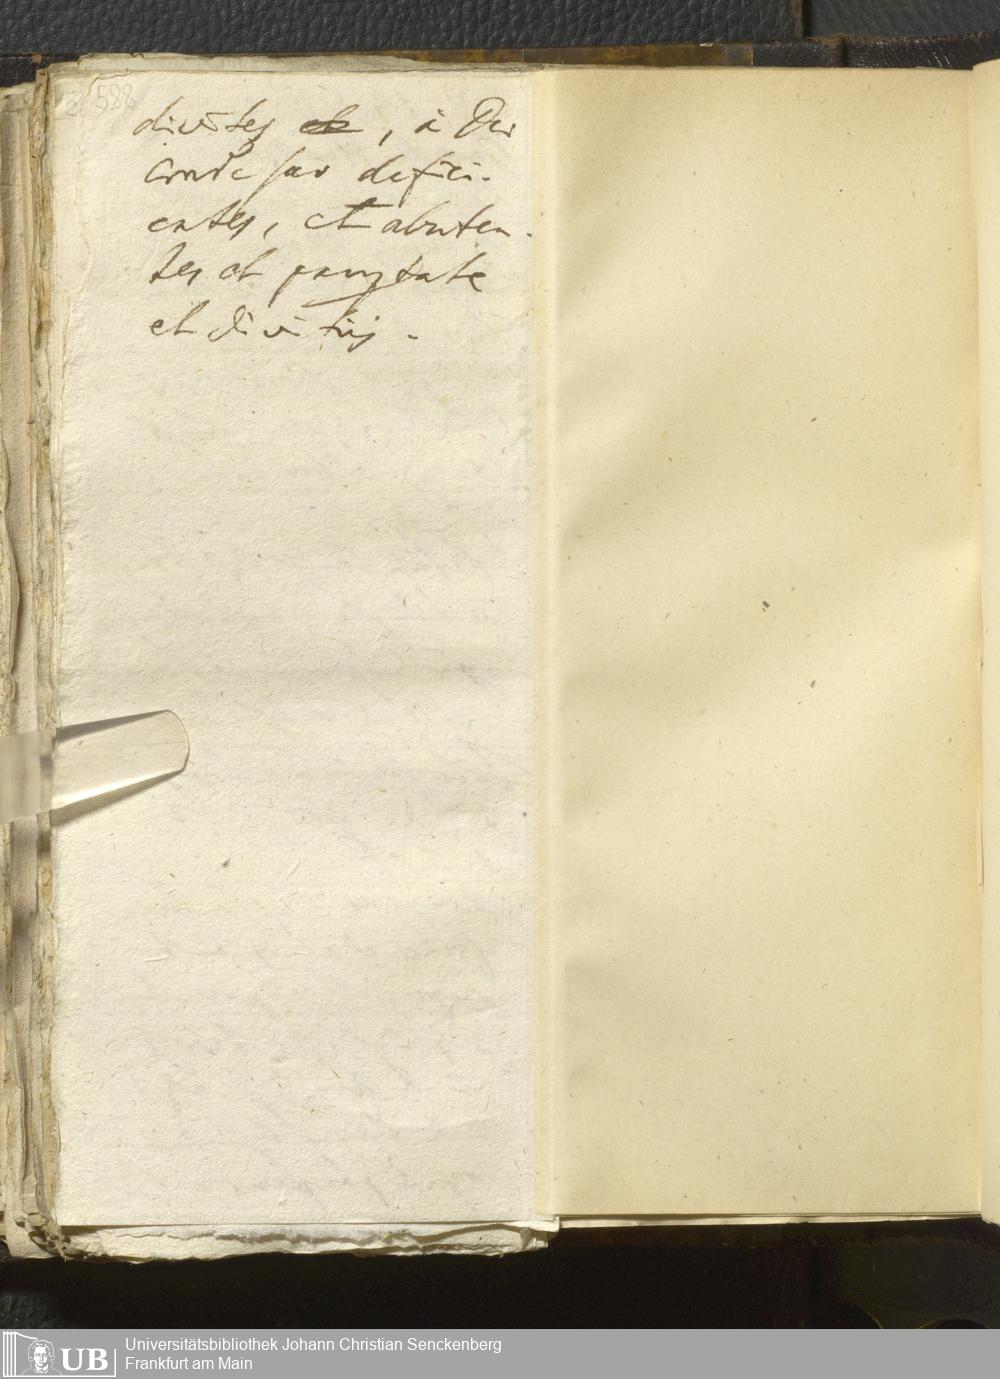 588
divites et, à Deo
defici-
entes, et abuten-
tes et paupertate
et divitijs.
UB
Universitätsbibliothek Johann Christian Senckenberg
Frankfurt am Main